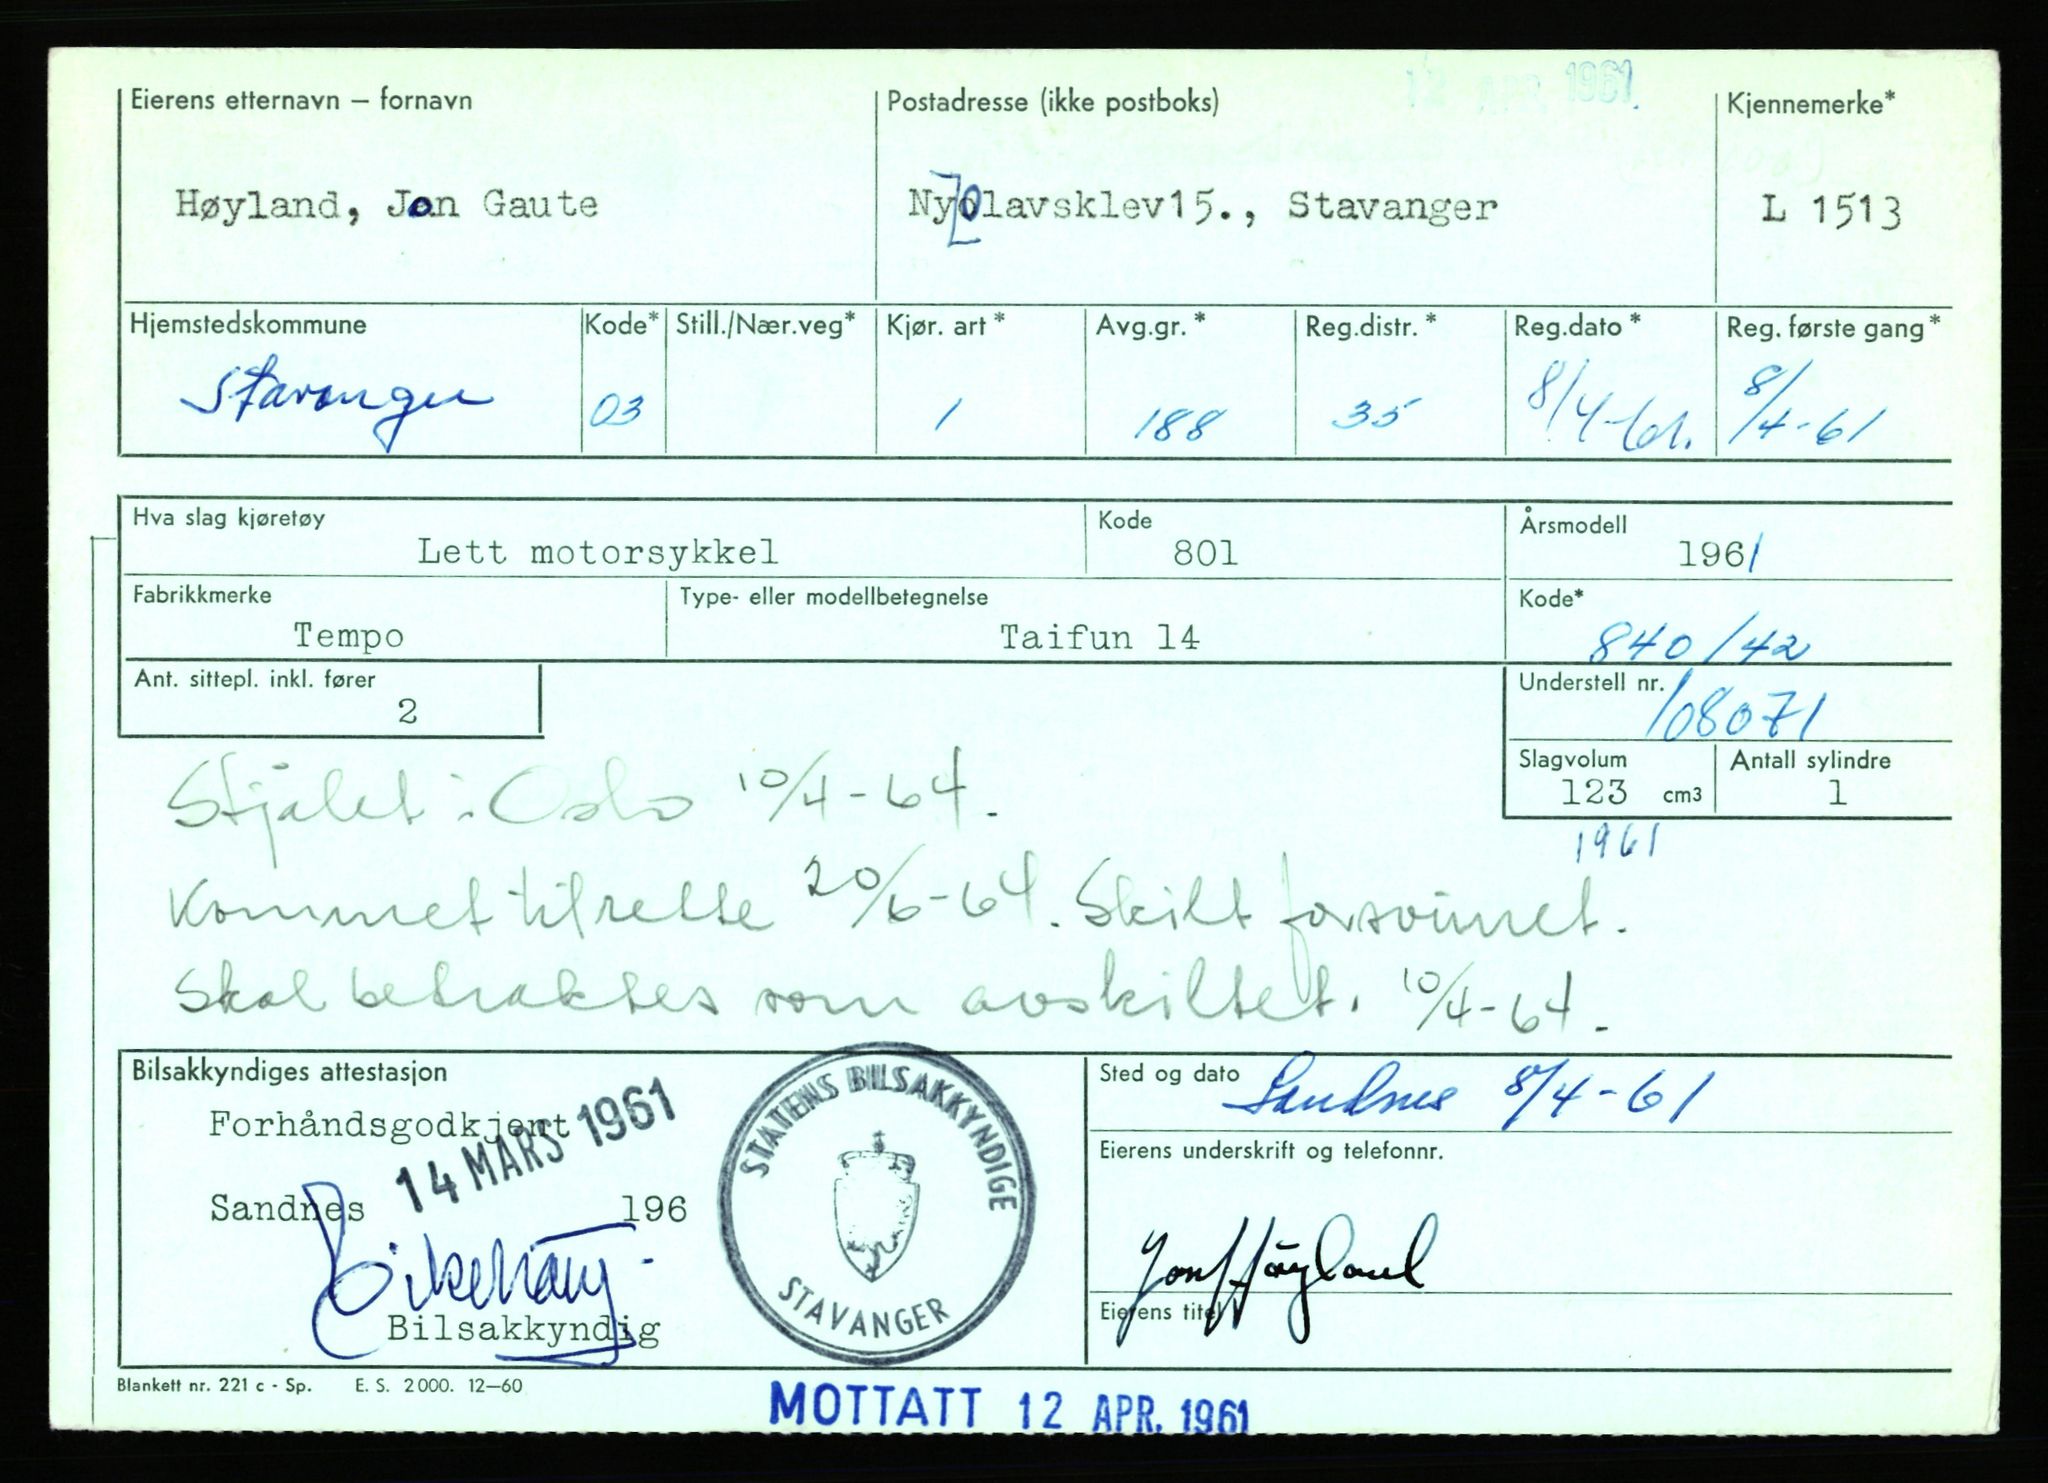 12 APR. 1961
Eierens etternavn – fornavn Postadresse (ikke postboks) Kjennemerke*
Høyland, Jon Gaute Ny Olavsklev15., Stavanger L 1513
Hjemstedskommune Kode* Still./Nær.veg* Kjør. art* Avg.gr.* Reg.distr.* Reg.dato* Reg. første gang*
Stavanger 03 1 188 35 8/4-61. 8/4-61
Hva slag kjøretøy Kode Årsmodell
Lett motorsykkel 801 1961
Fabrikkmerke Type- eller modellbetegnelse Kode*
Tempo Taifun 14 840/42
Ant. sittepl. inkl. fører Understell nr.
2 108071
Slagvolum Antall sylindre
123 cm3 1
Stjålet i Oslo 10/4-64.
1961
Kommet tilrette 20/6-64. Skilt forsvinnet.
Skal betraktes som avskiltet. 10/4-64.
Bilsakkyndiges attestasjon Sted og dato Sandnes 8/4-61
Forhåndsgodkjent
14 MARS 1961
Eierens underskrift og telefonnr.
Sandnes 196
STATENS BILSAKKYNDIGE
STAVANGER
Jon Høyland
Bilsakkyndig
Eierens titel
Blankett nr. 221 c - Sp. E. S. 2000. 12–60
MOTTATT 12 APR. 1961